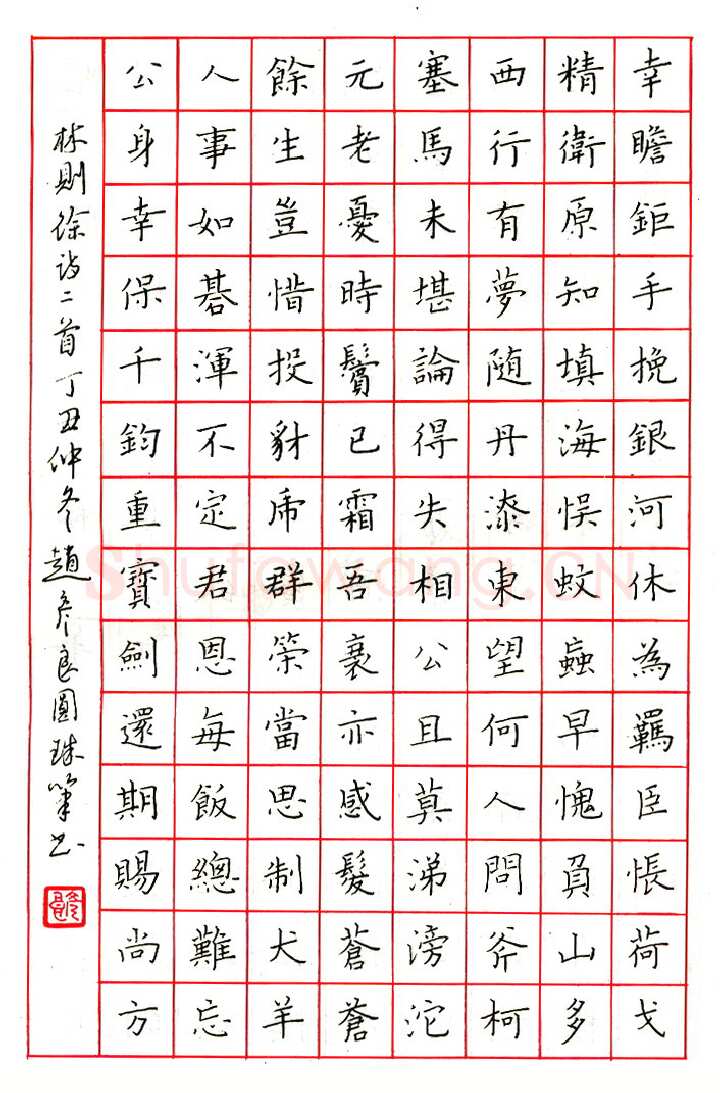 幸瞻鉅手挽銀河休為羈臣悵荷戈
精衛原知填海悞蚊蝱早愧負山多
西行有夢随丹漆東望何人問斧柯
塞馬未堪論得失相公且莫涕滂沱
元老憂時鬢已霜吾衰亦感髮蒼蒼
餘生豈惜投豺虎群策當思制犬羊
人事如碁渾不定君恩每飯總難忘
公身幸保千鈞重寶劍還期賜尚方
林則徐诗二首丁丑仲冬趙彥良圓珠筆书
Shufawang.CN